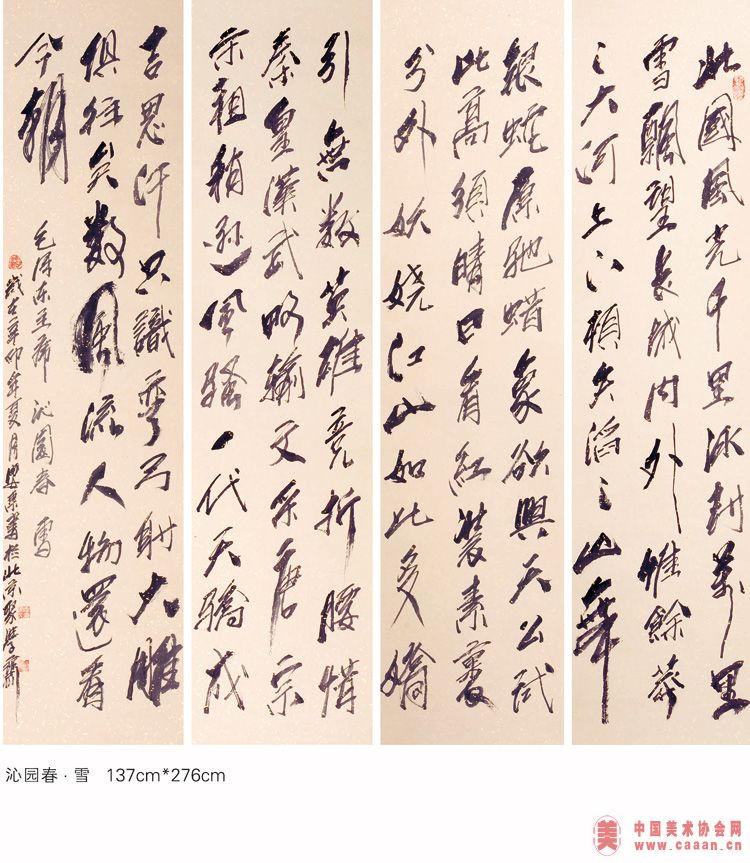 北國風光千里冰封萬里
雪飄望長城內外惟餘莽
々大河上下頓失滔々山舞
銀蛇原馳蜡象欲與天公試
比高須晴日看紅裝素裹
分外妖嬈江山如此多嬌
引無數英雄竞折腰惜
秦皇漢武略輸文采唐宗
宋祖稍遜風騷一代天驕成
吉思汗只識彎弓射大雕
俱往矣數風流人物還看
今朝
毛泽东主席 沁園春 雪
歲在辛卯年夏月 於北京
沁园春·雪 137cm*276cm
美 中国美术协会网
www.caaan.cn